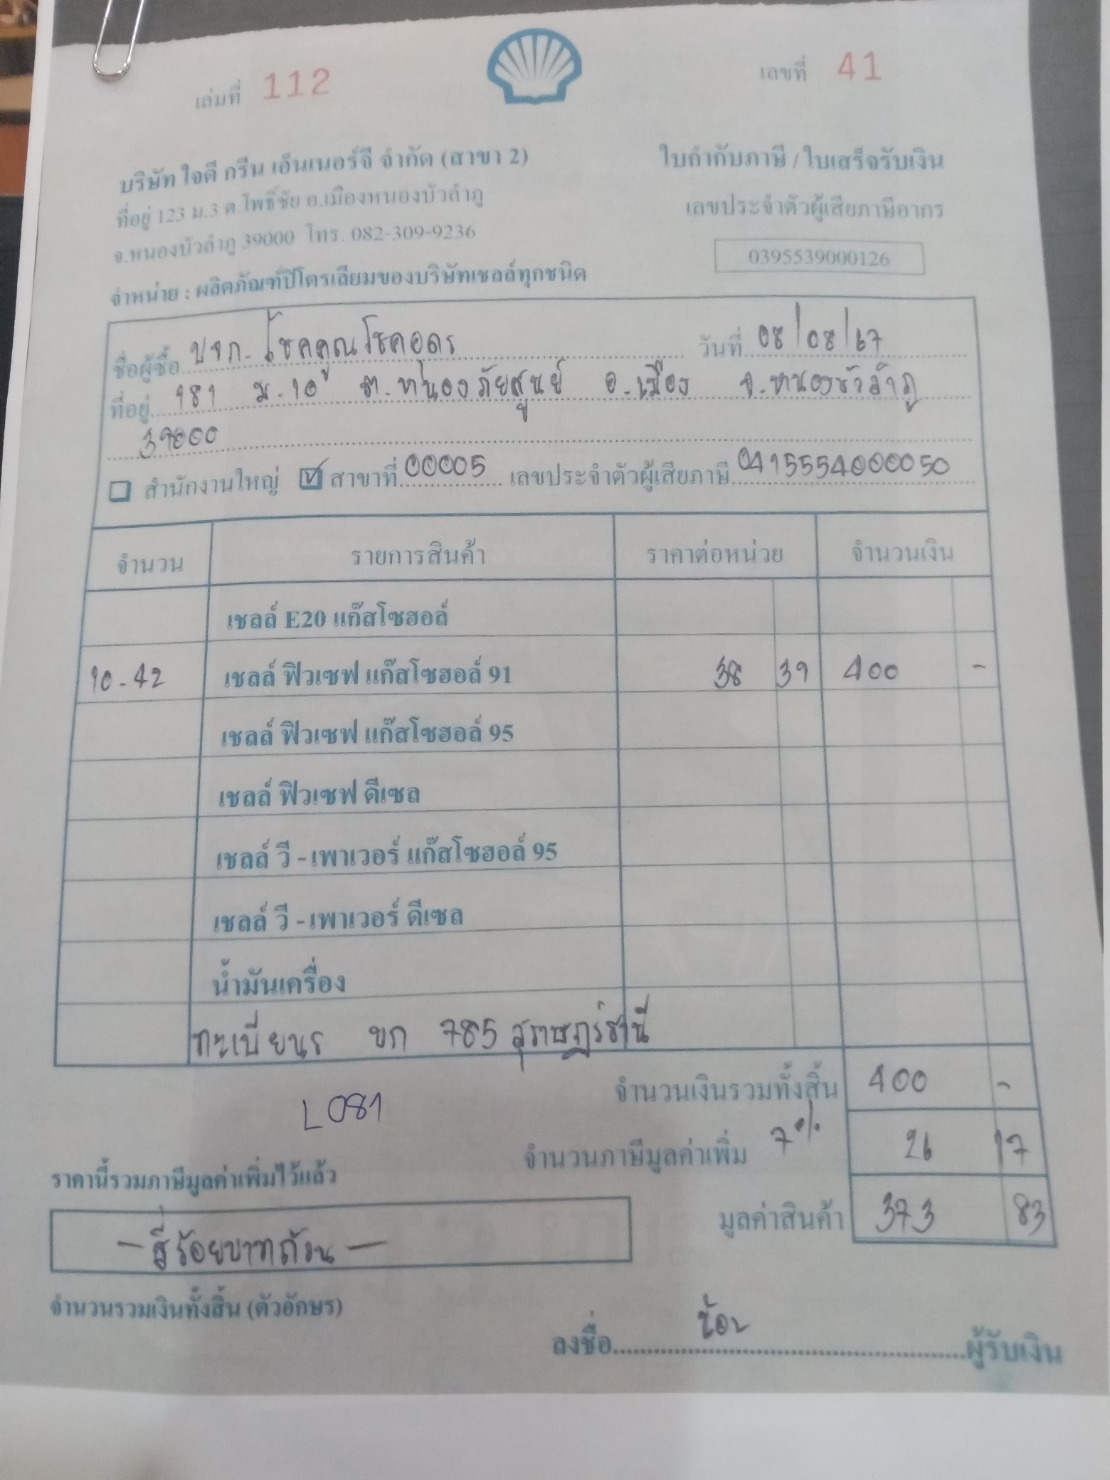 เล่มที่ 112
เลขที่ 41
บริษัท ใจดี กรีน เอ็นเนอร์จี จำกัด (สาขา 2)
ใบกำกับภาษี / ใบเสร็จรับเงิน
ที่อยู่ 123 ม.3 ต.โพธิ์ชัย อ.เมืองหนองบัวลำภู
เลขประจำตัวผู้เสียภาษีอากร
จ.หนองบัวลำภู 39000 โทร. 082-309-9236
0395539000126
จำหน่าย : ผลิตภัณฑ์ปิโตรเลียมของบริษัทเชลล์ทุกชนิด
ชื่อผู้ซื้อ บจก. โชคคูณโชคอุดร วันที่ 08/08/67
ที่อยู่ 181 ม.10 ต.หนองภัยศูนย์ อ.เมือง จ.หนองบัวลำภู
39000
สำนักงานใหญ่ สาขาที่ 00005 เลขประจำตัวผู้เสียภาษี 0415554000050
จำนวน รายการสินค้า ราคาต่อหน่วย จำนวนเงิน
เชลล์ E20 แก๊สโซฮอล์
10.42 เชลล์ ฟิวเซฟ แก๊สโซฮอล์ 91 38 39 400 -
เชลล์ ฟิวเซฟ แก๊สโซฮอล์ 95
เชลล์ ฟิวเซฟ ดีเซล
เชลล์ วี - เพาเวอร์ แก๊สโซฮอล์ 95
เชลล์ วี - เพาเวอร์ ดีเซล
น้ำมันเครื่อง
ทะเบียนร ขก 785 สุราษฎร์ธานี
จำนวนเงินรวมทั้งสิ้น 400 -
L081
จำนวนภาษีมูลค่าเพิ่ม 7% 26 17
ราคานี้รวมภาษีมูลค่าเพิ่มไว้แล้ว
มูลค่าสินค้า 373 83
- สี่ร้อยบาทถ้วน -
จำนวนรวมเงินทั้งสิ้น (ตัวอักษร)
ลงชื่อ ผู้รับเงิน